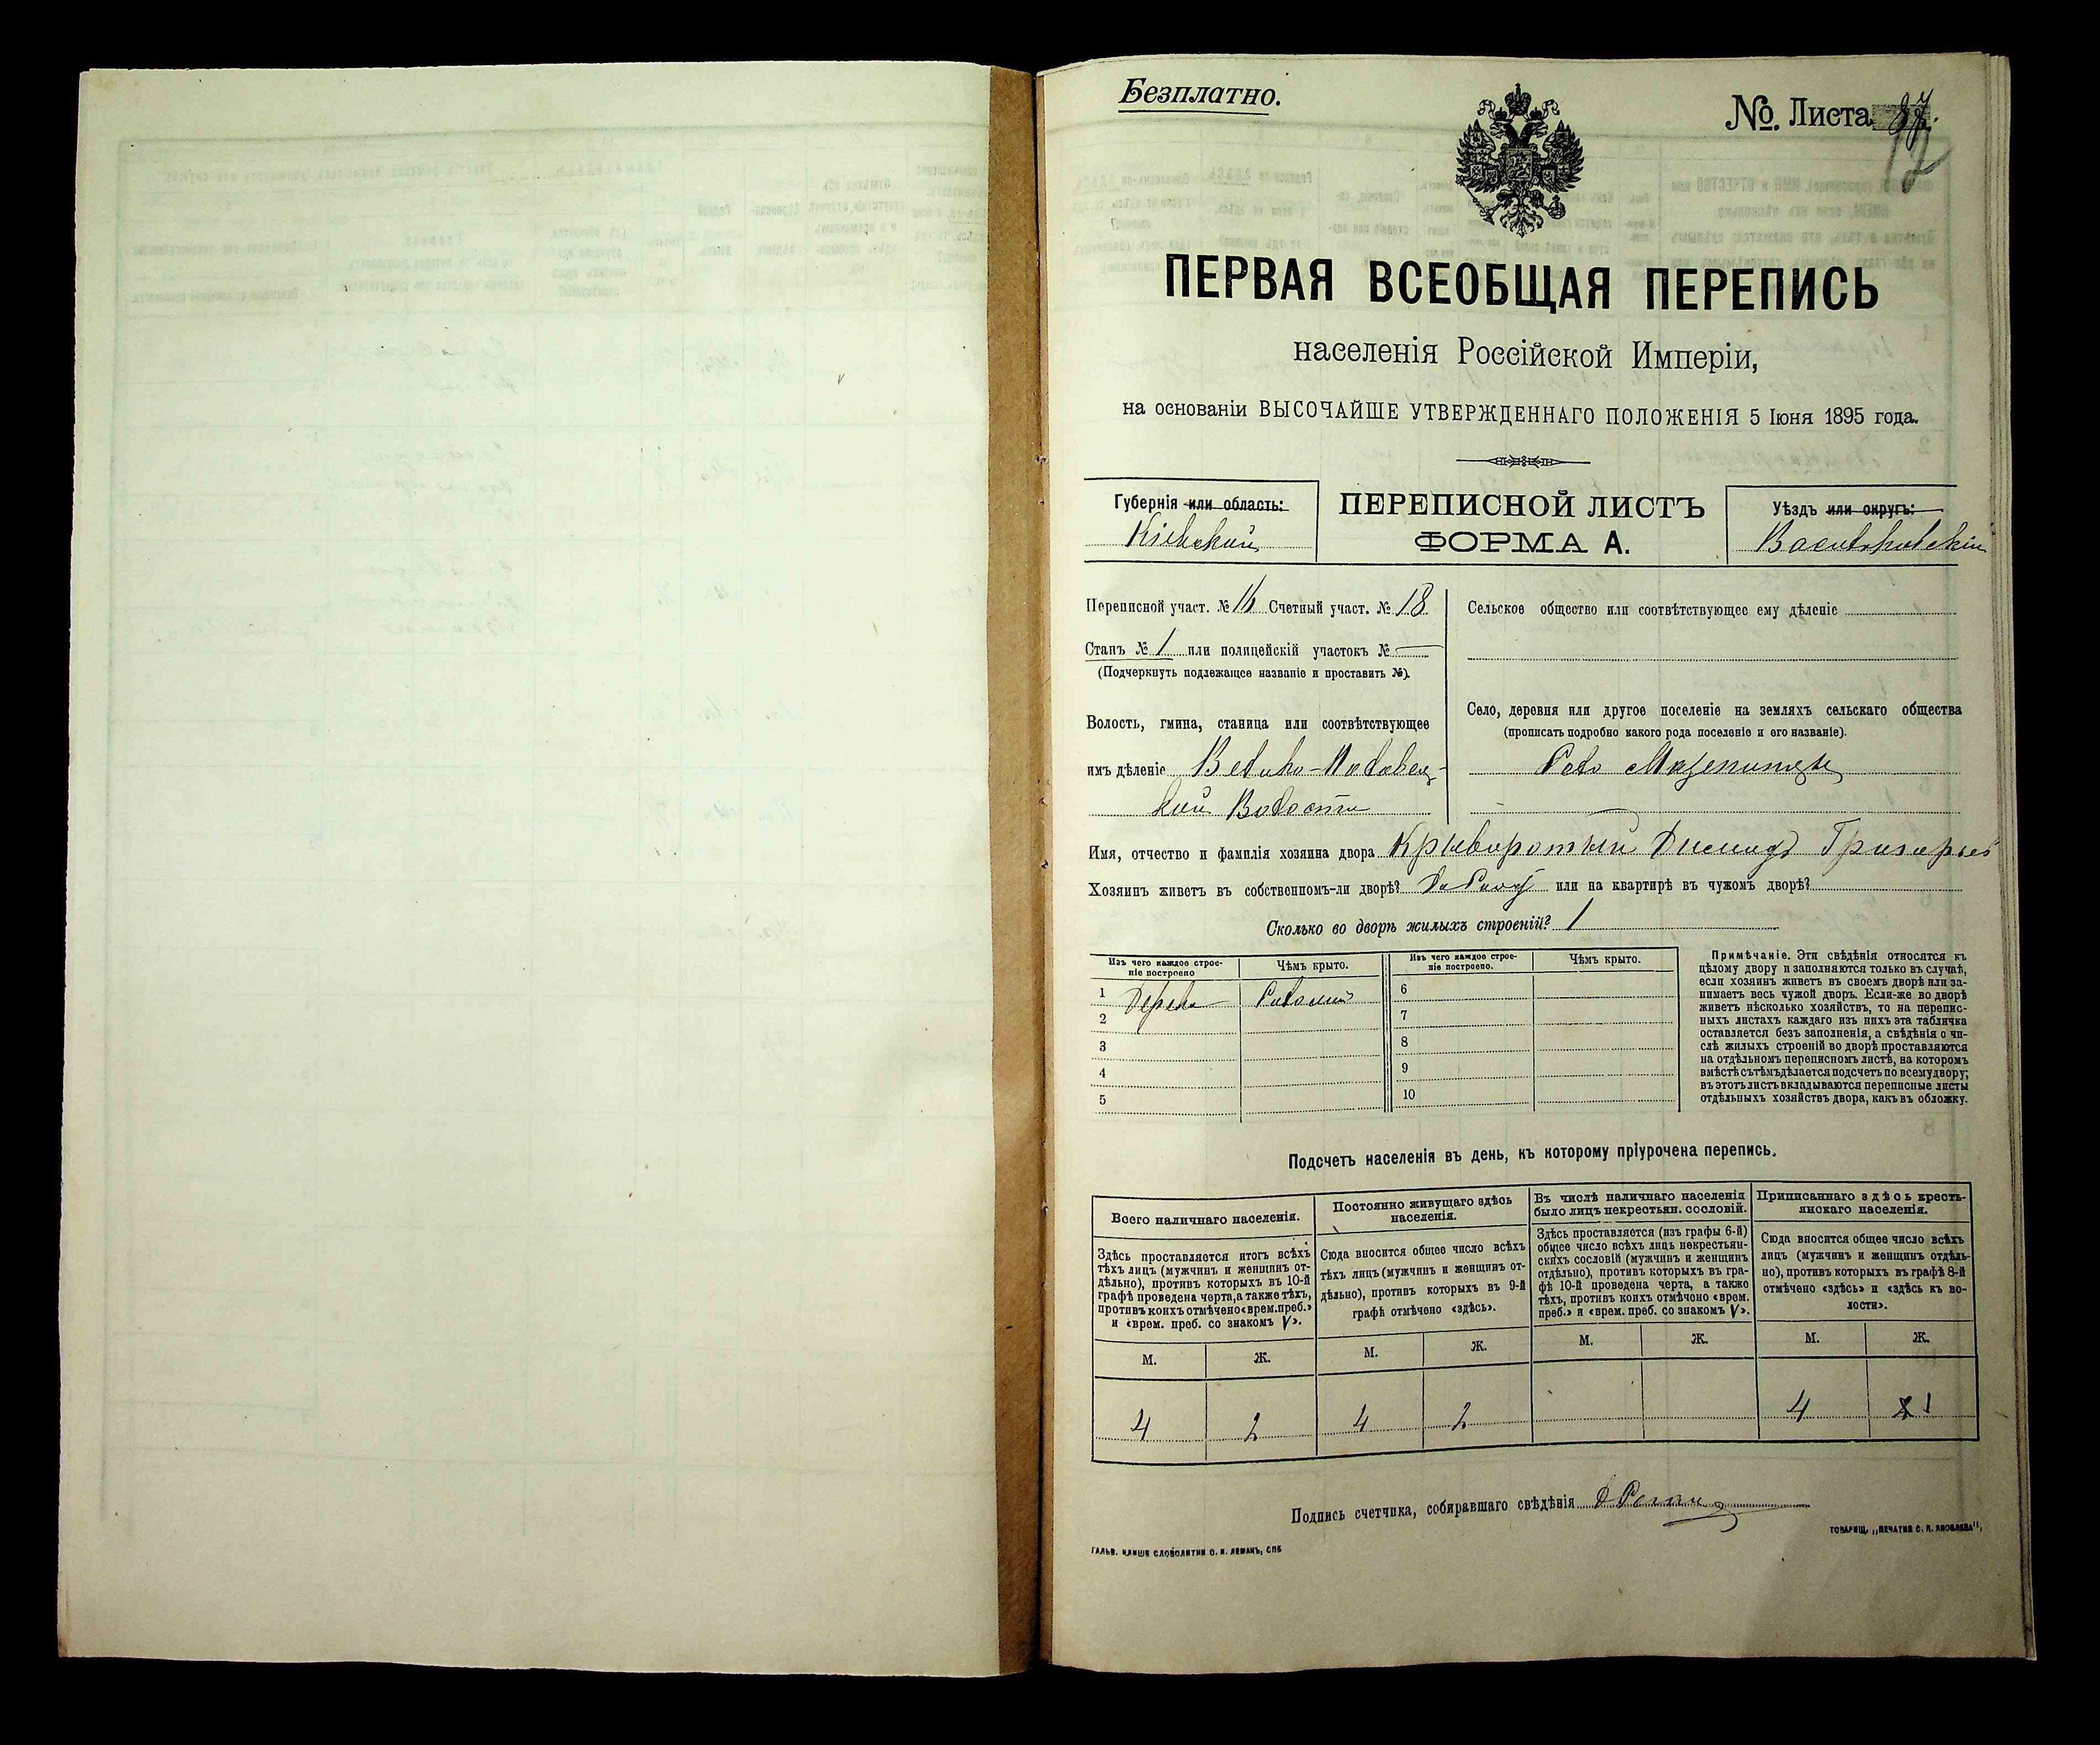 Безплатно.
№. Листа 37.
12
ПЕРВАЯ ВСЕОБЩАЯ ПЕРЕПИСЬ
населенія Россійской Имперіи,
на основаніи ВЫСОЧАЙШЕ УТВЕРЖДЕННАГО ПОЛОЖЕНІЯ 5 Іюня 1895 года.
Губернія или область:
Кіевская
ПЕРЕПИСНОЙ ЛИСТЪ
ФОРМА А.
Уѣздъ или округъ:
Васильковскій
Переписной участ. № 16 Счетный участ. № 18
Станъ № 1 или полицейскій участокъ № —
(Подчеркнуть подлежащее названіе и проставить №).
Волость, гмина, станица или соотвѣтствующее
имъ дѣленіе Велико-Половец-
кой Волости
Сельское общество или соотвѣтствующее ему дѣленіе
Село, деревня или другое поселеніе на земляхъ сельскаго общества
(прописать подробно какого рода поселеніе и его названіе).
Село Мазепинцы
Имя, отчество и фамилія хозяина двора Крыворотый Дисмидъ Григорьев
Хозяинъ живетъ въ собственномъ-ли дворѣ? или на квартирѣ въ чужомъ дворѣ?
Сколько во дворѣ жилыхъ строеній? 1
Изъ чего каждое строе-
ніе построено
Чѣмъ крыто.
Изъ чего каждое строе-
ніе построено.
Чѣмъ крыто.
1 Дерево Соломой 6
2 7
3 8
4 9
5 10
Примѣчаніе. Эти свѣдѣнія относятся къ
цѣлому двору и заполняются только въ случаѣ,
если хозяинъ живетъ въ своемъ дворѣ или за-
нимаетъ весь чужой дворъ. Если-же во дворѣ
живетъ нѣсколько хозяйствъ, то на перепис-
ныхъ листахъ каждаго изъ нихъ эта табличка
оставляется безъ заполненія, а свѣдѣнія о чи-
слѣ жилыхъ строеній во дворѣ проставляются
на отдѣльномъ переписномъ листѣ, на которомъ
вмѣстѣ съ тѣмъ дѣлается подсчетъ по всему двору;
въ этотъ листъ вкладываются переписные листы
отдѣльныхъ хозяйствъ двора, какъ въ обложку.
Подсчетъ населенія въ день, къ которому пріурочена перепись.
Всего наличнаго населенія.
Здѣсь проставляется итогъ всѣхъ
тѣхъ лицъ (мужчинъ и женщинъ от-
дѣльно), противъ которыхъ въ 10-й
графѣ проведена черта, а также тѣхъ,
противъ коихъ отмѣчено «врем. преб.»
и «врем. преб. со знакомъ V».
Постоянно живущаго здѣсь
населенія.
Сюда вносится общее число всѣхъ
тѣхъ лицъ (мужчинъ и женщинъ от-
дѣльно), противъ которыхъ въ 9-й
графѣ отмѣчено «здѣсь».
Въ числѣ наличнаго населенія
было лицъ некрестьян. сословій.
Здѣсь проставляется (изъ графы 6-й)
общее число всѣхъ лицъ некрестьян-
скихъ сословій (мужчинъ и женщинъ
отдѣльно), противъ которыхъ въ гра-
фѣ 10-й проведена черта, а также
тѣхъ, противъ коихъ отмѣчено «врем.
преб.» и «врем. преб. со знакомъ V».
Приписаннаго здѣсь кресть-
янскаго населенія.
Сюда вносится общее число всѣхъ
лицъ (мужчинъ и женщинъ отдѣль-
но), противъ которыхъ въ графѣ 8-й
отмѣчено «здѣсь» и «здѣсь къ во-
лости».
М. Ж. М. Ж. М. Ж. М. Ж.
4 2 4 2 4 1
Подпись счетчика, собиравшаго свѣдѣнія
ГАЛЬВ. КЛИШЕ СЛОВОЛИТНИ О. И. ЛЕМАНЪ, СПБ
ТОВАРИЩ. „ПЕЧАТНЯ С. П. ЯКОВЛЕВА“,